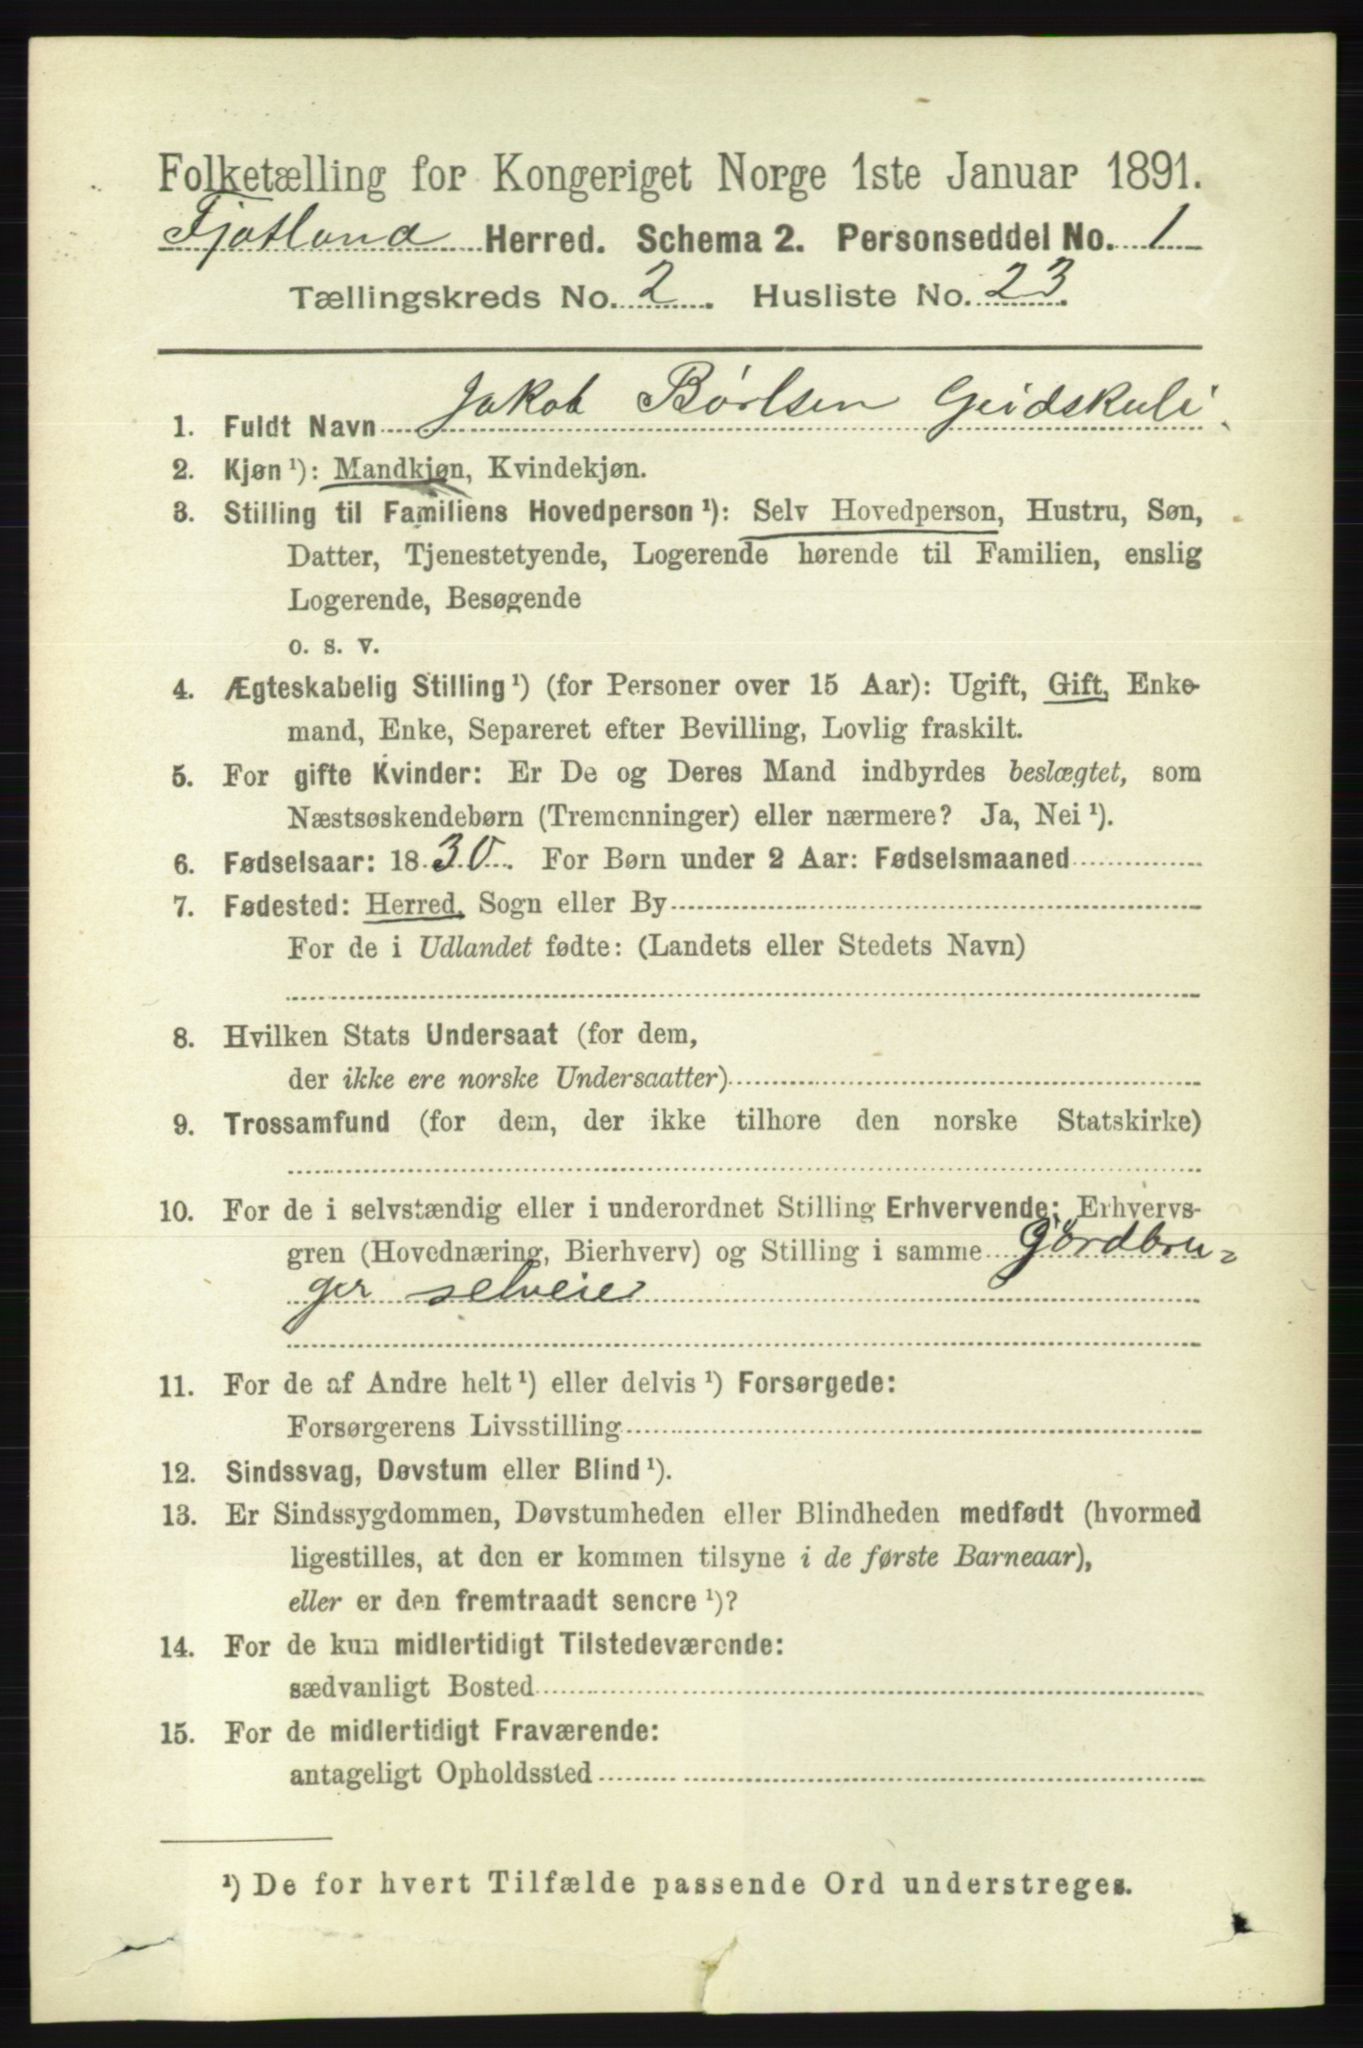 Folketælling for Kongeriget Norge 1ste Januar 1891.
Fjotland Herred. Schema 2. Personseddel No. 1
Tællingskreds No. 2. Husliste No. 23.
1. Fuldt Navn Jakob Børlsen Geidskuli
2. Kjøn ¹): Mandkjøn, Kvindekjøn.
3. Stilling til Familiens Hovedperson ¹): Selv Hovedperson, Hustru, Søn,
Datter, Tjenestetyende, Logerende hørende til Familien, enslig
Logerende, Besøgende
o. s. v.
4. Ægteskabelig Stilling ¹) (for Personer over 15 Aar): Ugift, Gift, Enke-
mand, Enke, Separeret efter Bevilling, Lovlig fraskilt.
5. For gifte Kvinder: Er De og Deres Mand indbyrdes beslægtet, som
Næstsøskendebørn (Tremenninger) eller nærmere? Ja, Nei ¹).
6. Fødselsaar: 1830. For Børn under 2 Aar: Fødselsmaaned
7. Fødested: Herred, Sogn eller By
For de i Udlandet fødte: (Landets eller Stedets Navn)
8. Hvilken Stats Undersaat (for dem,
der ikke ere norske Undersaatter)
9. Trossamfund (for dem, der ikke tilhøre den norske Statskirke)
10. For de i selvstændig eller i underordnet Stilling Erhvervende: Erhvervs-
gren (Hovednæring, Bierhverv) og Stilling i samme Gördbru-
ger selveier
11. For de af Andre helt ¹) eller delvis ¹) Forsørgede:
Forsørgerens Livsstilling
12. Sindssvag, Døvstum eller Blind ¹).
13. Er Sindssygdommen, Døvstumheden eller Blindheden medfødt (hvormed
ligestilles, at den er kommen tilsyne i de første Barneaar),
eller er den fremtraadt senere ¹)?
14. For de kun midlertidigt Tilstedeværende:
sædvanligt Bosted
15. For de midlertidigt Fraværende:
antageligt Opholdssted
¹) De for hvert Tilfælde passende Ord understreges.